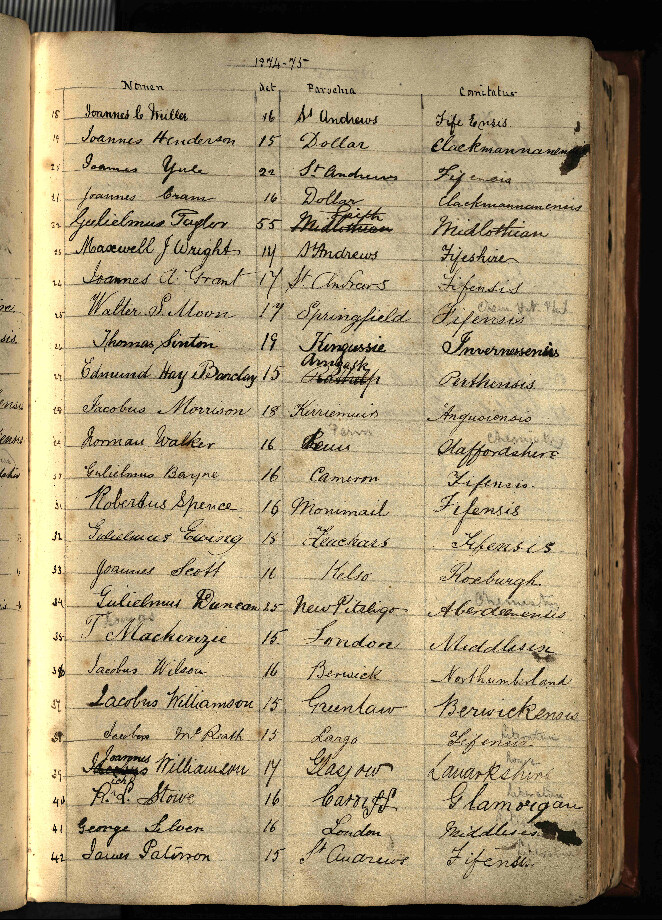 1874-75
Nomen Aet Parochia Comitatus
18 Joannes C Miller 16 St Andrews Fife Ensis
19 Joannes Henderson 15 Dollar Clackmannanensis
20 Joannes Yule 22 St Andrews Fifensis
21 Joannes Cram 16 Dollar Clackmannanensis
22 Gulielmus Taylor 55 Midlothian Midlothian
23 Maxwell J Wright 14 St Andrews Fifeshire
24 Joannes A. Grant 17 St Andrews Fifensis
25 Walter S. Moon 17 Springfield Fifensis
26 Thomas Sinton 19 Kingussie Invernessensis
27 Edmund Hay Barclay 15 Arngask Perthensis
28 Jacobus Morrison 18 Kirriemuir Angusiensis
29 Norman Walker 16 Staffordshire
30 Gulielmus Bayne 16 Cameron Fifensis
31 Robertus Spence 16 Monimail Fifensis
32 Gulielmus Ewing 18 Leuchars Fifensis
33 Joannes Scott Kelso Roxburgh
34 Gulielmus Duncan 25 New Pitsligo Aberdeenensis
35 T Mackenzie 15 London Middlesex
36 Jacobus Wilson 16 Berwick Northumberland
37 Jacobus Williamson 15 Greenlaw Berwickensis
38 Jacobus 15 Largo Fifensis
39 Joannes Williamson 17 Glasgow Lanarkshire
40 R. L. Stowe 16 Cardiff Glamorgan
41 George Silver 16 London Middlesex
42 James Paterson 15 St Andrews Fifensis